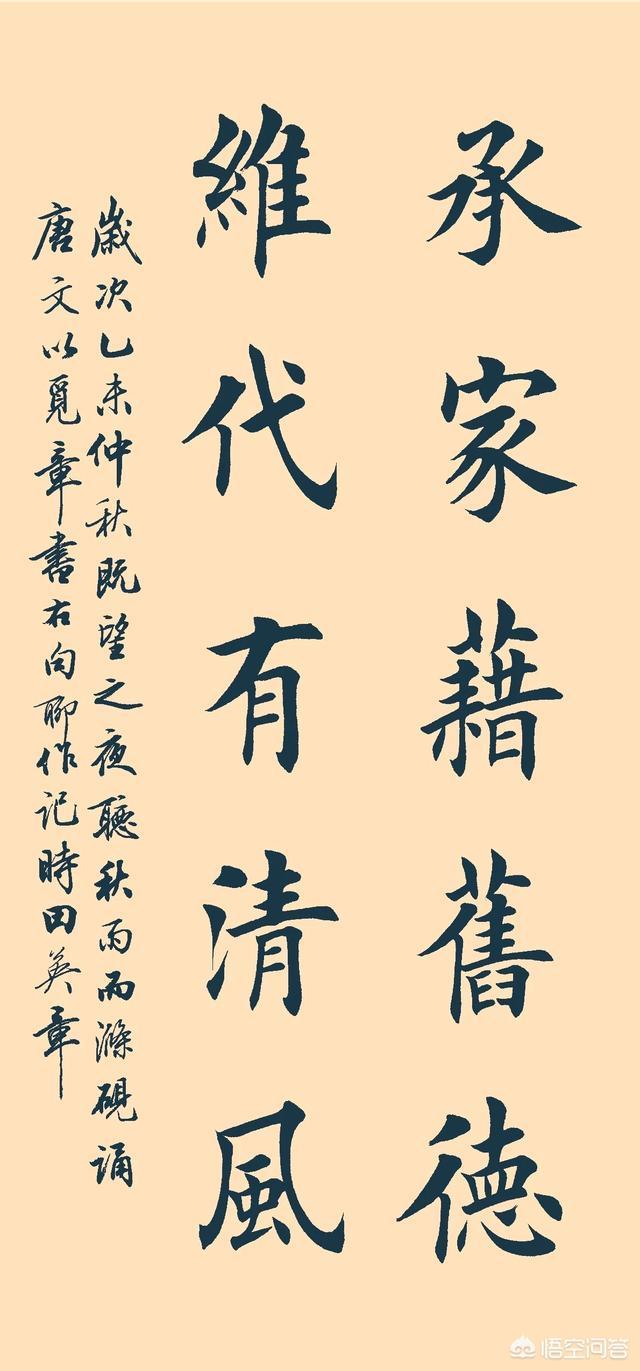 承家藉舊德
維代有清風
歲次乙未仲秋既望之夜聽秋雨而滌硯誦
唐文以覓章書右句聊作记時田英章
悟空问答